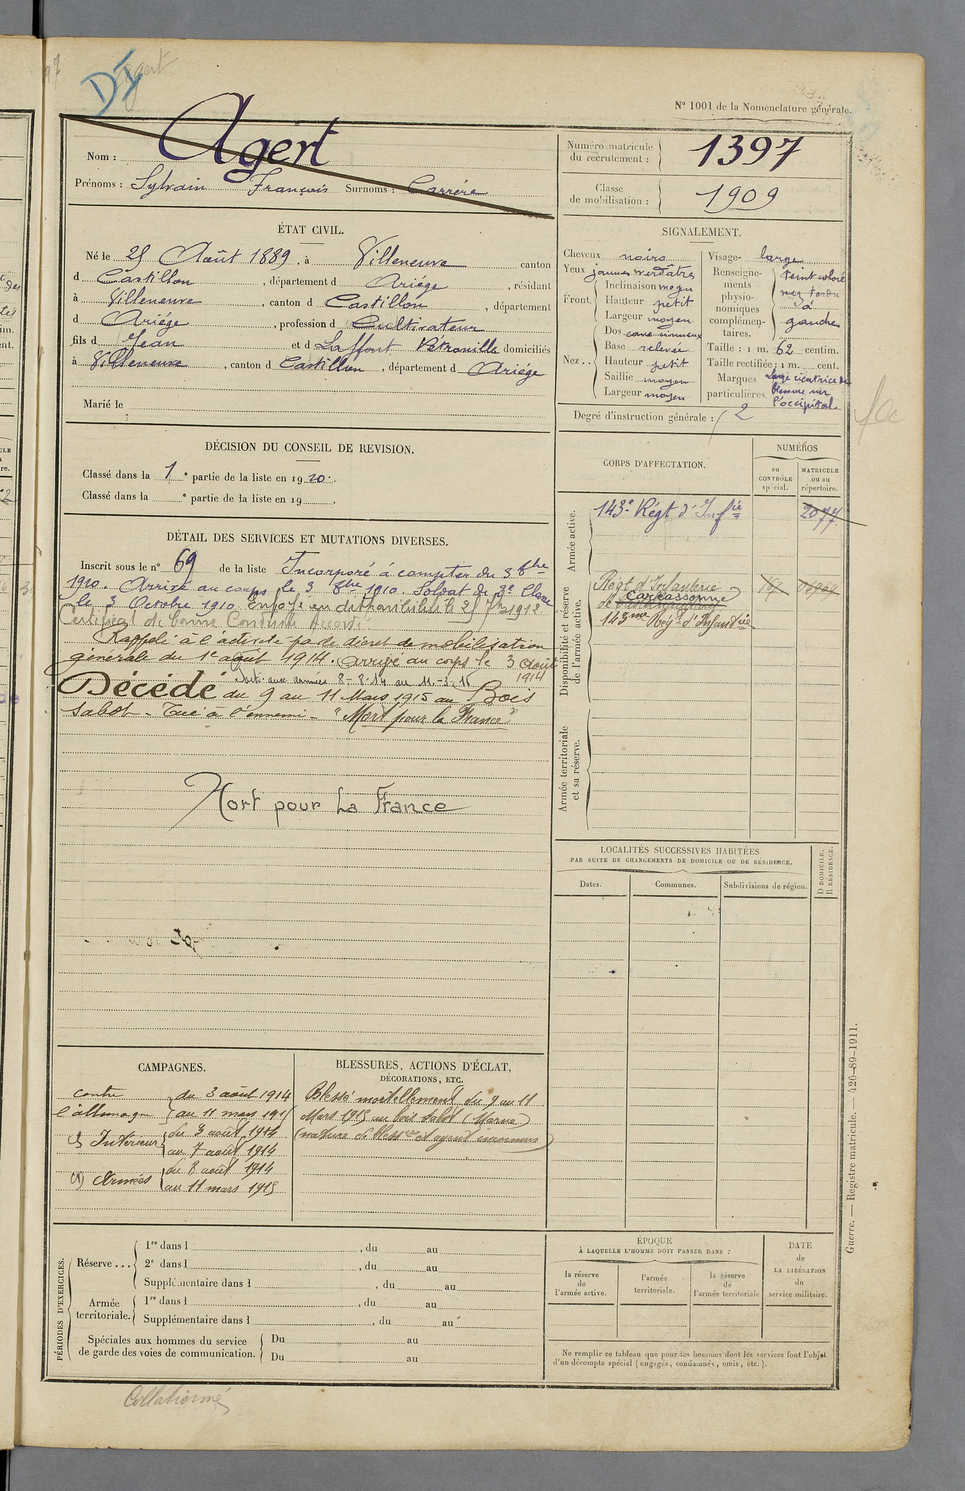 DI Agert
N° 1001 de la Nomenclature générale.
Nom : Agert
Prénoms : Sylvain François Surnoms : Carrère
Numéro matricule du recrutement : 1397
Classe de mobilisation : 1909
ÉTAT CIVIL.
Né le 25 Août 1889, à Villeneuve canton
d Castillon, département d Ariége, résidant
à Villeneuve, canton d Castillon, département
d Ariége, profession d Cultivateur
fils d Jean et d Laffont Pétronille domiciliés
à Villeneuve, canton d Castillon, département d Ariége
Marié le
SIGNALEMENT.
Cheveux noirs
Yeux jaunes verdâtre
Front. Inclinaison moyn
Hauteur petit
Largeur moyen
Nez .. Dos cave sinueux
Base relevée
Hauteur petit
Saillie moyen
Largeur moyen
Visage large
Renseignements physionomiques complémentaires. teint coloré
nez tordu
à
gauche
Taille : 1 m. 62 centim.
Taille rectifiée : 1 m. cent.
Marques particulières. Large cicatrice de
blessure sur
l'occipital.
Degré d'instruction générale : 2
DÉCISION DU CONSEIL DE REVISION.
Classé dans la 1e partie de la liste en 1920.
Classé dans la e partie de la liste en 19 .
CORPS D'AFFECTATION.
NUMÉROS
au CONTRÔLE spécial.
MATRICULE ou au répertoire.
Armée active.
143e Régt d'Infie 2077
Disponibilité et réserve de l'armée active.
Régt d'Infanterie
de Carcassonne
143me Rég. d'Infanterie
Armée territoriale et sa réserve.
DÉTAIL DES SERVICES ET MUTATIONS DIVERSES.
Inscrit sous le n° 69 de la liste Incorporé à compter du 3 8bre
1910. Arrivé au corps le 3 8bre 1910. Soldat de 2e Classe
le 3 Octobre 1910. Envoyé en disponibilité le 25 7bre 1912
Certificat de bonne Conduite Accordé
Rappelé à l'activité par le décret de mobilisation
générale du 1er août 1914. Arrivé au corps le 3 Août
1914
Parti aux armées 8-8-14 au 11-3-15
Décédé du 9 au 11 Mars 1915 au Bois
Sabot - Tué à l'ennemi - "Mort pour la France"
Mort pour La France
LOCALITÉS SUCCESSIVES HABITÉES
PAR SUITE DE CHANGEMENTS DE DOMICILE OU DE RÉSIDENCE.
Dates.
Communes.
Subdivisions de région.
D DOMICILE.
R RÉSIDENCE.
CAMPAGNES.
contre l'allemagne du 3 août 1914
au 11 mars 1915
Intérieur du 3 août 1914
au 7 août 1914
Armées du 8 août 1914
au 11 mars 1915
BLESSURES, ACTIONS D'ÉCLAT,
DÉCORATIONS, ETC.
Blessé mortellement du 9 au 11
Mars 1915 au bois Sabot (Marne)
(nature de bless. et agent inconnus)
PÉRIODES D'EXERCICES.
Réserve ... 1re dans l , du au
2e dans l , du au
Supplémentaire dans l , du au
Armée territoriale. 1re dans l , du au
Supplémentaire dans l , du au
Spéciales aux hommes du service de garde des voies de communication. Du au
Du au
ÉPOQUE
À LAQUELLE L'HOMME DOIT PASSER DANS :
la réserve de l'armée active.
l'armée territoriale.
la réserve de l'armée territoriale
DATE de LA LIBÉRATION du service militaire.
Ne remplir ce tableau que pour les hommes dont les services font l'objet
d'un décompte spécial (engagés, condamnés, omis, etc.).
Guerre. — Registre matricule. — 426-89-1911.
Collationné